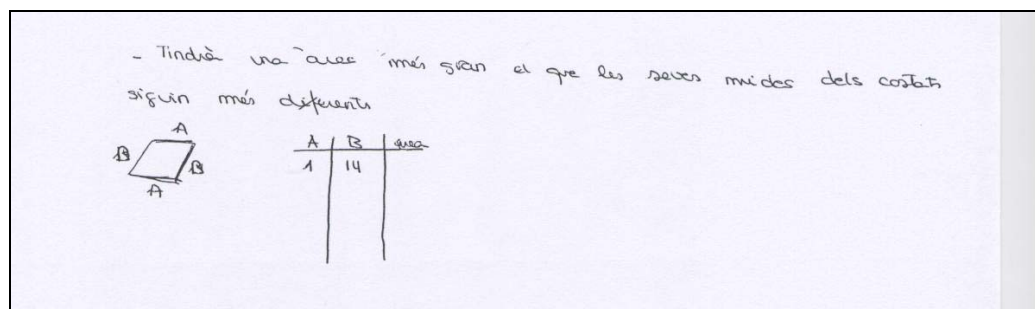 - Tindrà una àrea més gran el que les seves mides dels costats
siguin més diferents
A
B
B
A
A B àrea
1 14